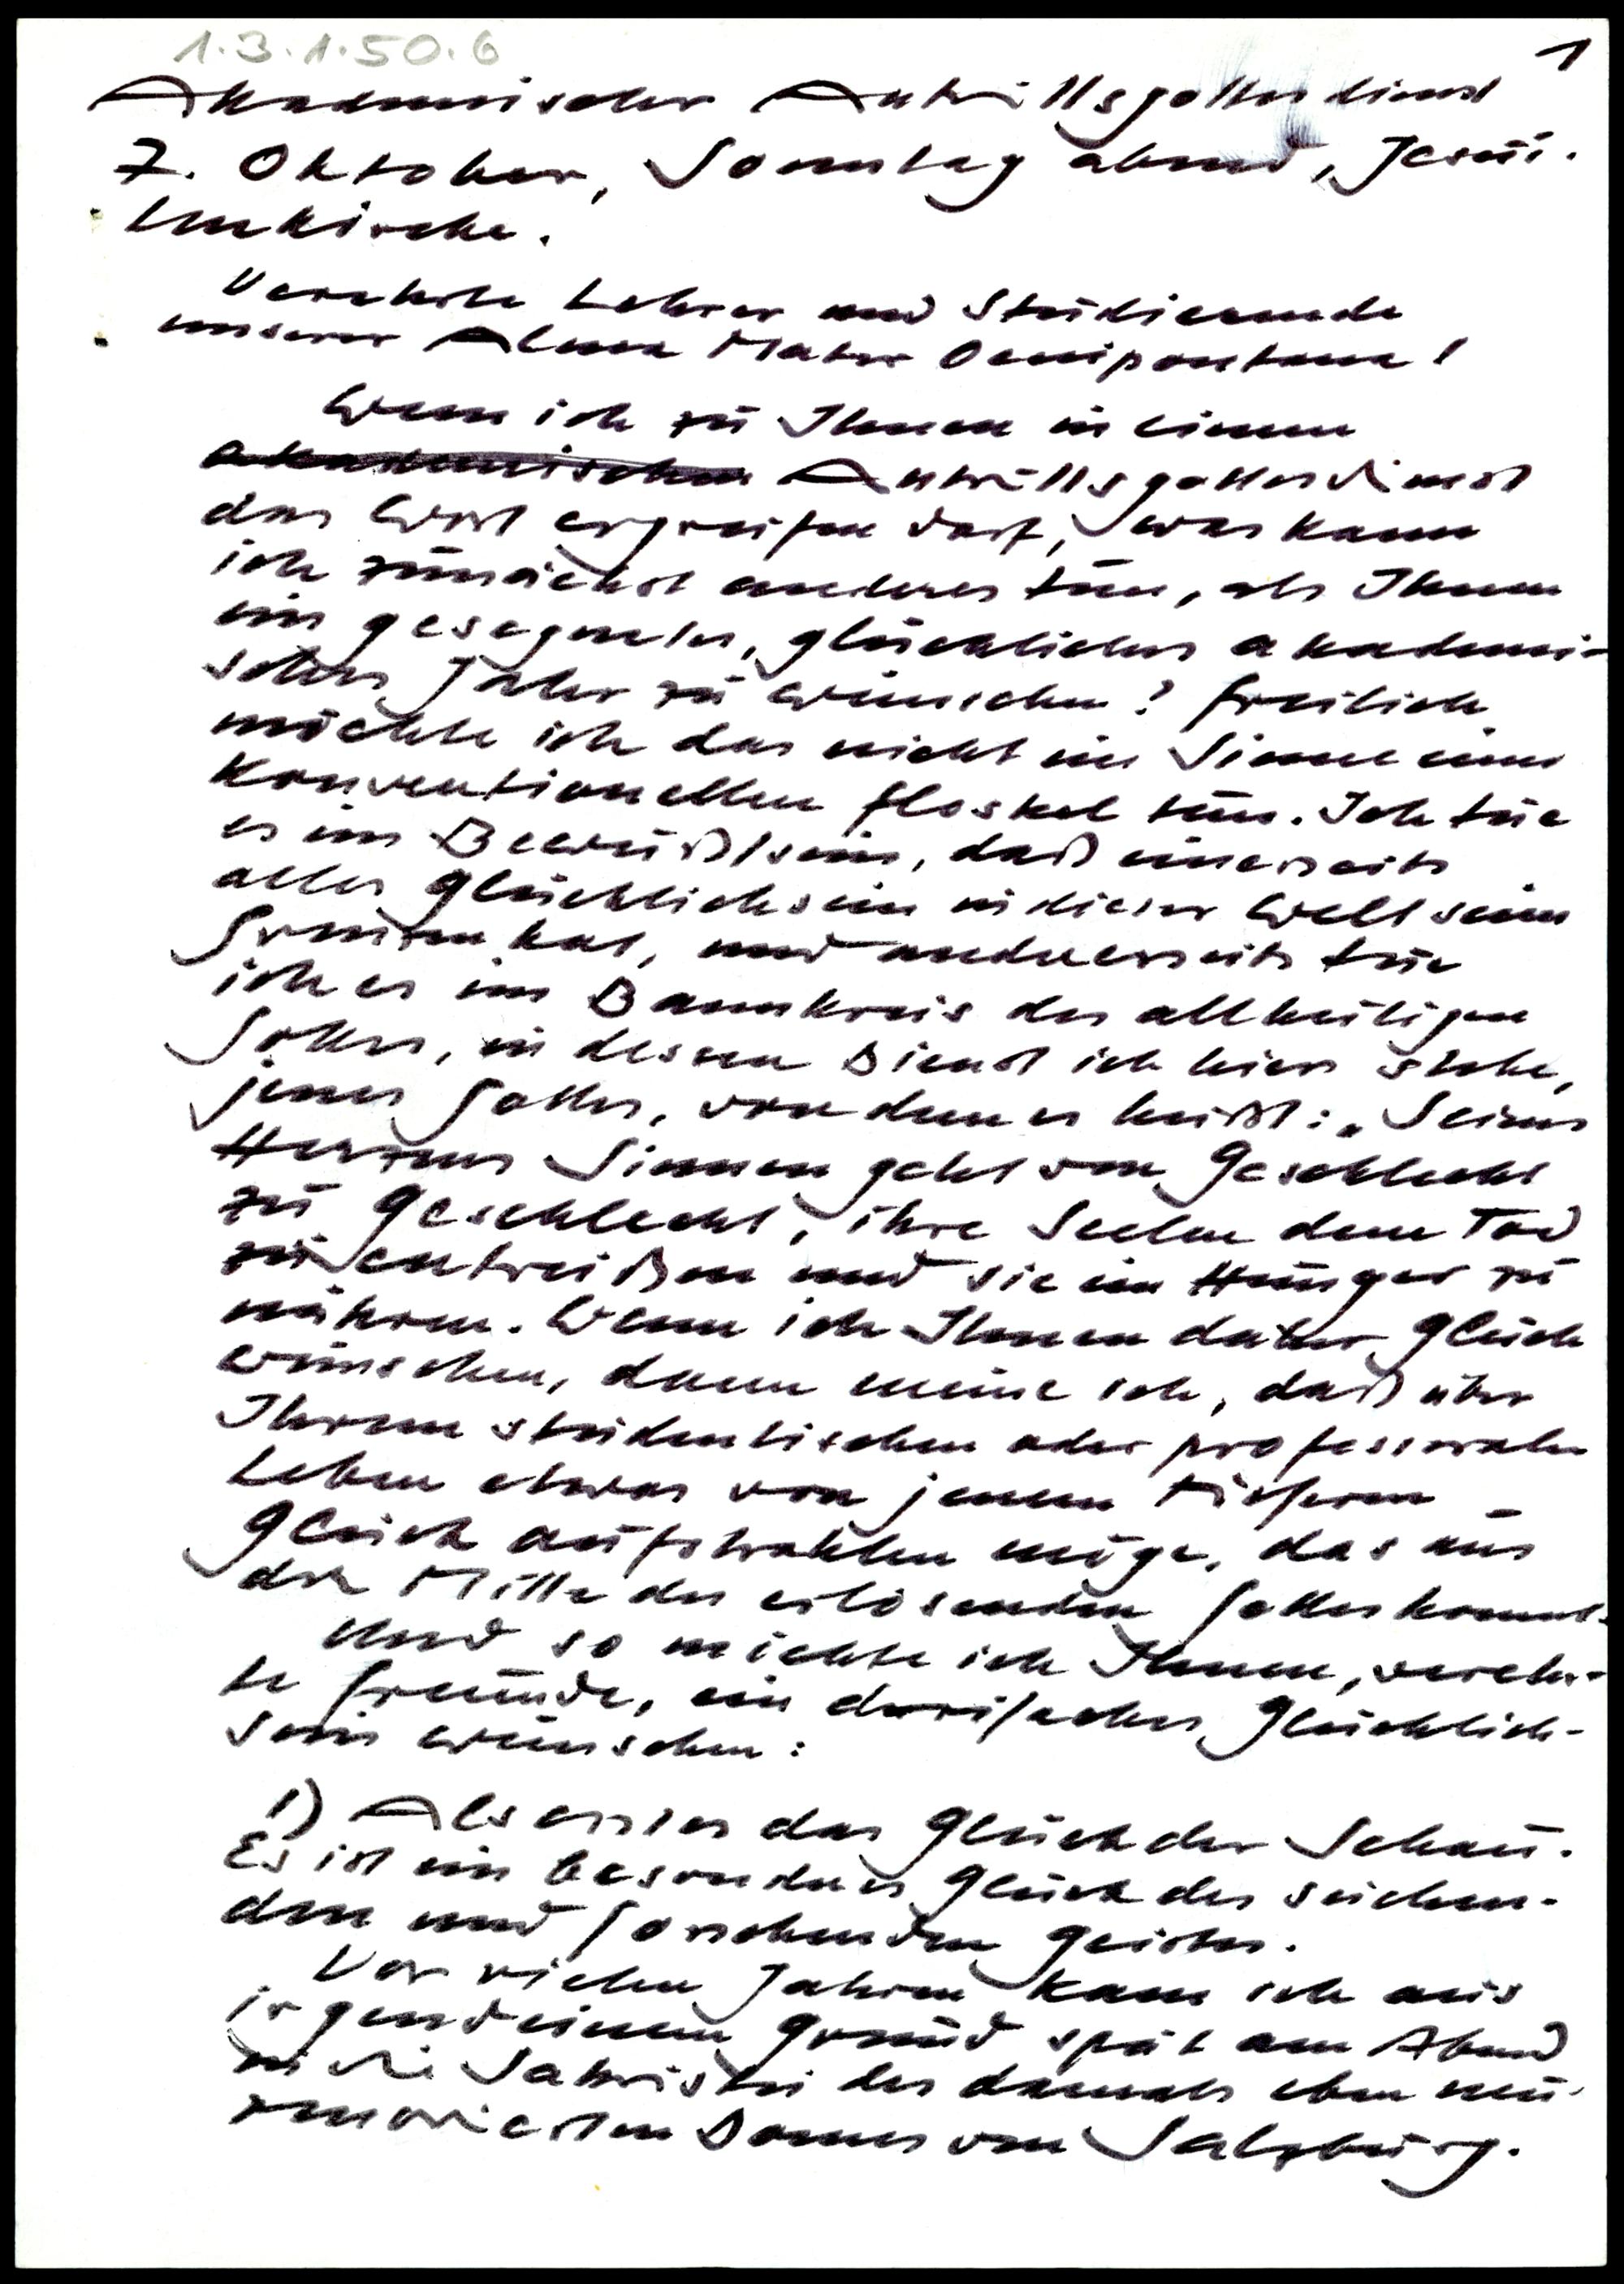 1.3.1.50.6
1
Akademischer Antrittsgottesdienst
7. Oktober, Sonntag abend, Jesui-
tenkirche.
Verehrte Lehrer und Studierende
unserer Alma Mater Oenipontana!
Wenn ich zu Ihnen in einem
akademischen Antrittsgottesdienst
das Wort ergreifen darf, was kann
ich zunächst anderes tun, als Ihnen
ein gesegnetes, glückliches akademi-
sches Jahr zu wünschen? Freilich
möchte ich das nicht im Sinne einer
konventionellen Floskel tun. Ich tue
es im Bewußtsein, daß einerseits
alles Glücklichsein in dieser Welt seine
Grenzen hat, und andererseits tue
ich es im Bannkreis des allheiligen
Gottes, in dessen Dienst ich hier stehe,
jenes Gottes, von dem es heißt: „Seines
Herzens Sinnen geht von Geschlecht
zu Geschlecht, ihre Seelen dem Tod
zu entreißen und sie im Hunger zu
nähren. Wenn ich Ihnen daher Glück
wünschen, dann meine ich, daß über
Ihrem studentischen oder professoralen
Leben etwas von jenem tieferen
Glück aufstrahlen möge, das aus
der Mitte des erlösenden Gottes kommt.
Und so möchte ich Ihnen, verehr-
te Freunde, ein dreifaches Glücklich-
sein wünschen:
1) Als erstes das Glück der Schau.
Es ist ein besonderes Glück des suchen-
den und forschenden Geistes.
Vor vielen Jahren kam ich aus
irgendeinem Grund spät am Abend
in die Sakristei des damals eben neu
renovierten Domes von Salzburg.